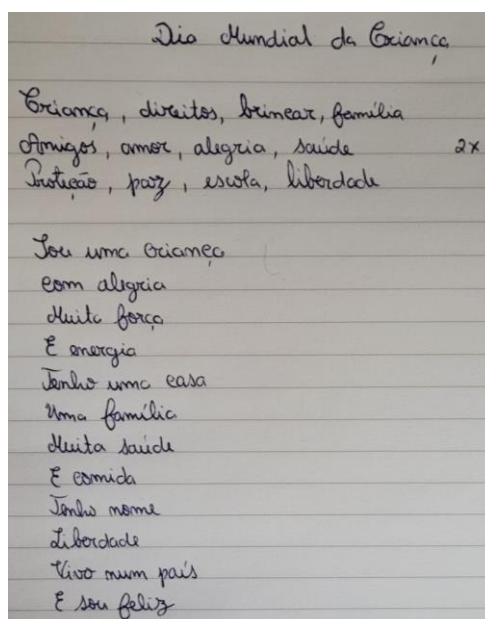 Dia Mundial da Criança
Criança, direitos, brincar, família
Amigos, amor, alegria, saúde 2x
Proteção, paz, escola, liberdade
Sou uma criança
com alegria
Muita força
E energia
Tenho uma casa
Uma família
Muita saúde
E comida
Tenho nome
Liberdade
Vivo num país
E sou feliz